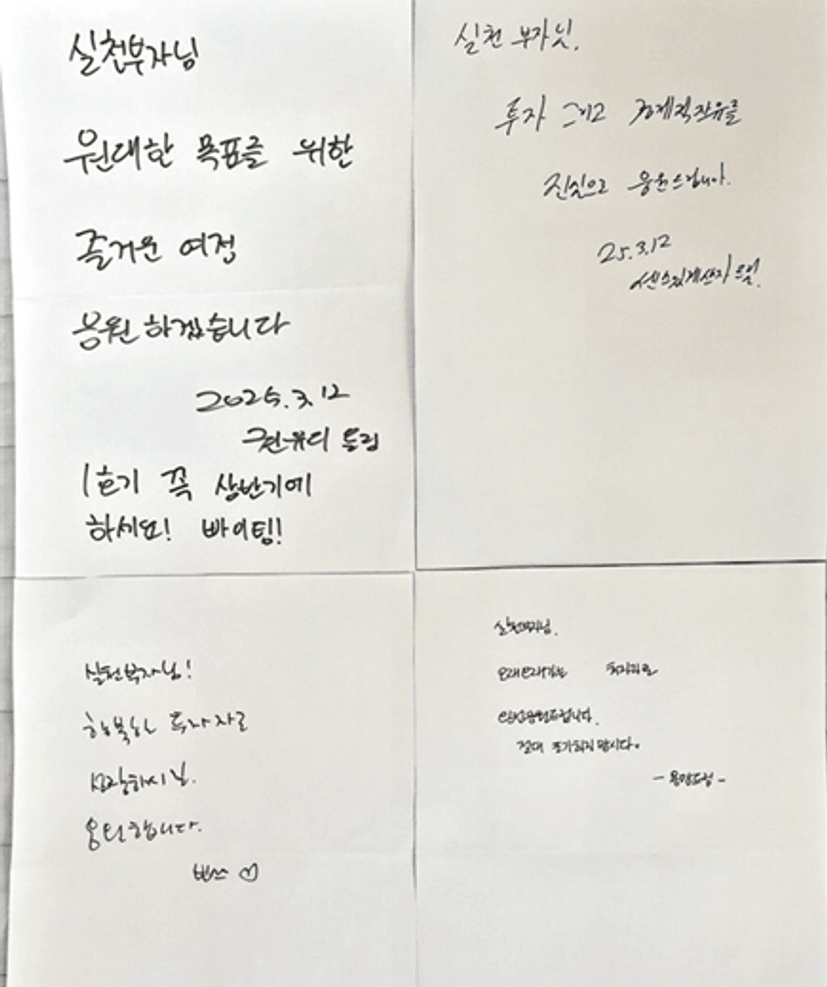 실천부자님
원대한 목표를 위한
즐거운 여정
응원 하겠습니다
2025.3.12
권유디 드림
1호기 꼭 상반기에
하세요! 빠이팅!
실천 부자님.
투자 그리고 경제적자유를
진심으로 응원드립니다.
25.3.12
드림.
실천부자님!
행복한 투자자로
성장하시길.
응원합니다.
쁘쓰 ♡
실천부자님.
오래오래가는 투자자로
응원드립니다.
절대 포기하지맙시다.